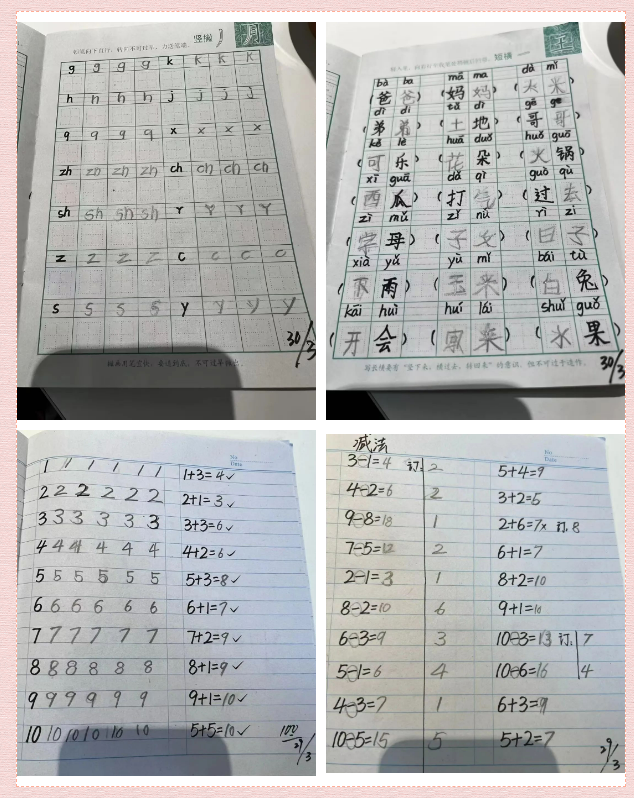 竖撇
g g g g k k k k
h h h h j j j j
q q q q x x x x
zh zh zh zh ch ch ch ch
sh sh sh sh r r r r
z z z z c c c c
s s s s y y y y
30/3
短横 一
bà ba mā ma dà mǐ
(爸爸) (妈妈) (大米)
dì di tǔ dì gē ge
(弟弟) (土地) (哥哥)
kě lè huā duǒ huǒ guō
(可乐) (花朵) (火锅)
xī guā dǎ qì guò qù
(西瓜) (打气) (过去)
zì mǔ zǐ nǚ rì zi
(字母) (子女) (日子)
xià yǔ yù mǐ bái tù
(下雨) (玉米) (白兔)
kāi huì huí lái shuǐ guǒ
(开会) (回来) (水果)
30/3
No
Date
1 1 1 1 1 1 1+3=4✓
2 2 2 2 2 2 2+1=3✓
3 3 3 3 3 3 3+3=6✓
4 4 4 4 4 4 4+2=6✓
5 5 5 5 5 5 5+3=8✓
6 6 6 6 6 6 6+1=7✓
7 7 7 7 7 7 7+2=9✓
8 8 8 8 8 8 8+1=9✓
9 9 9 9 9 9 9+1=10✓
10 10 10 10 10 10 5+5=10✓
100
29/3
减法
No
Date
3-1=4 订: 2 5+4=9
4-2=6 2 3+2=5
9-8=18 1 2+6=7× 订. 8
7-5=12 2 6+1=7
2-1=3 1 8+2=10
8-2=10 6 9+1=10
6-3=9 3 10-3=13 订: 7
5-1=6 4 10-6=16 4
4-3=7 1 6+3=9
10-5=15 5 5+2=7
29/3